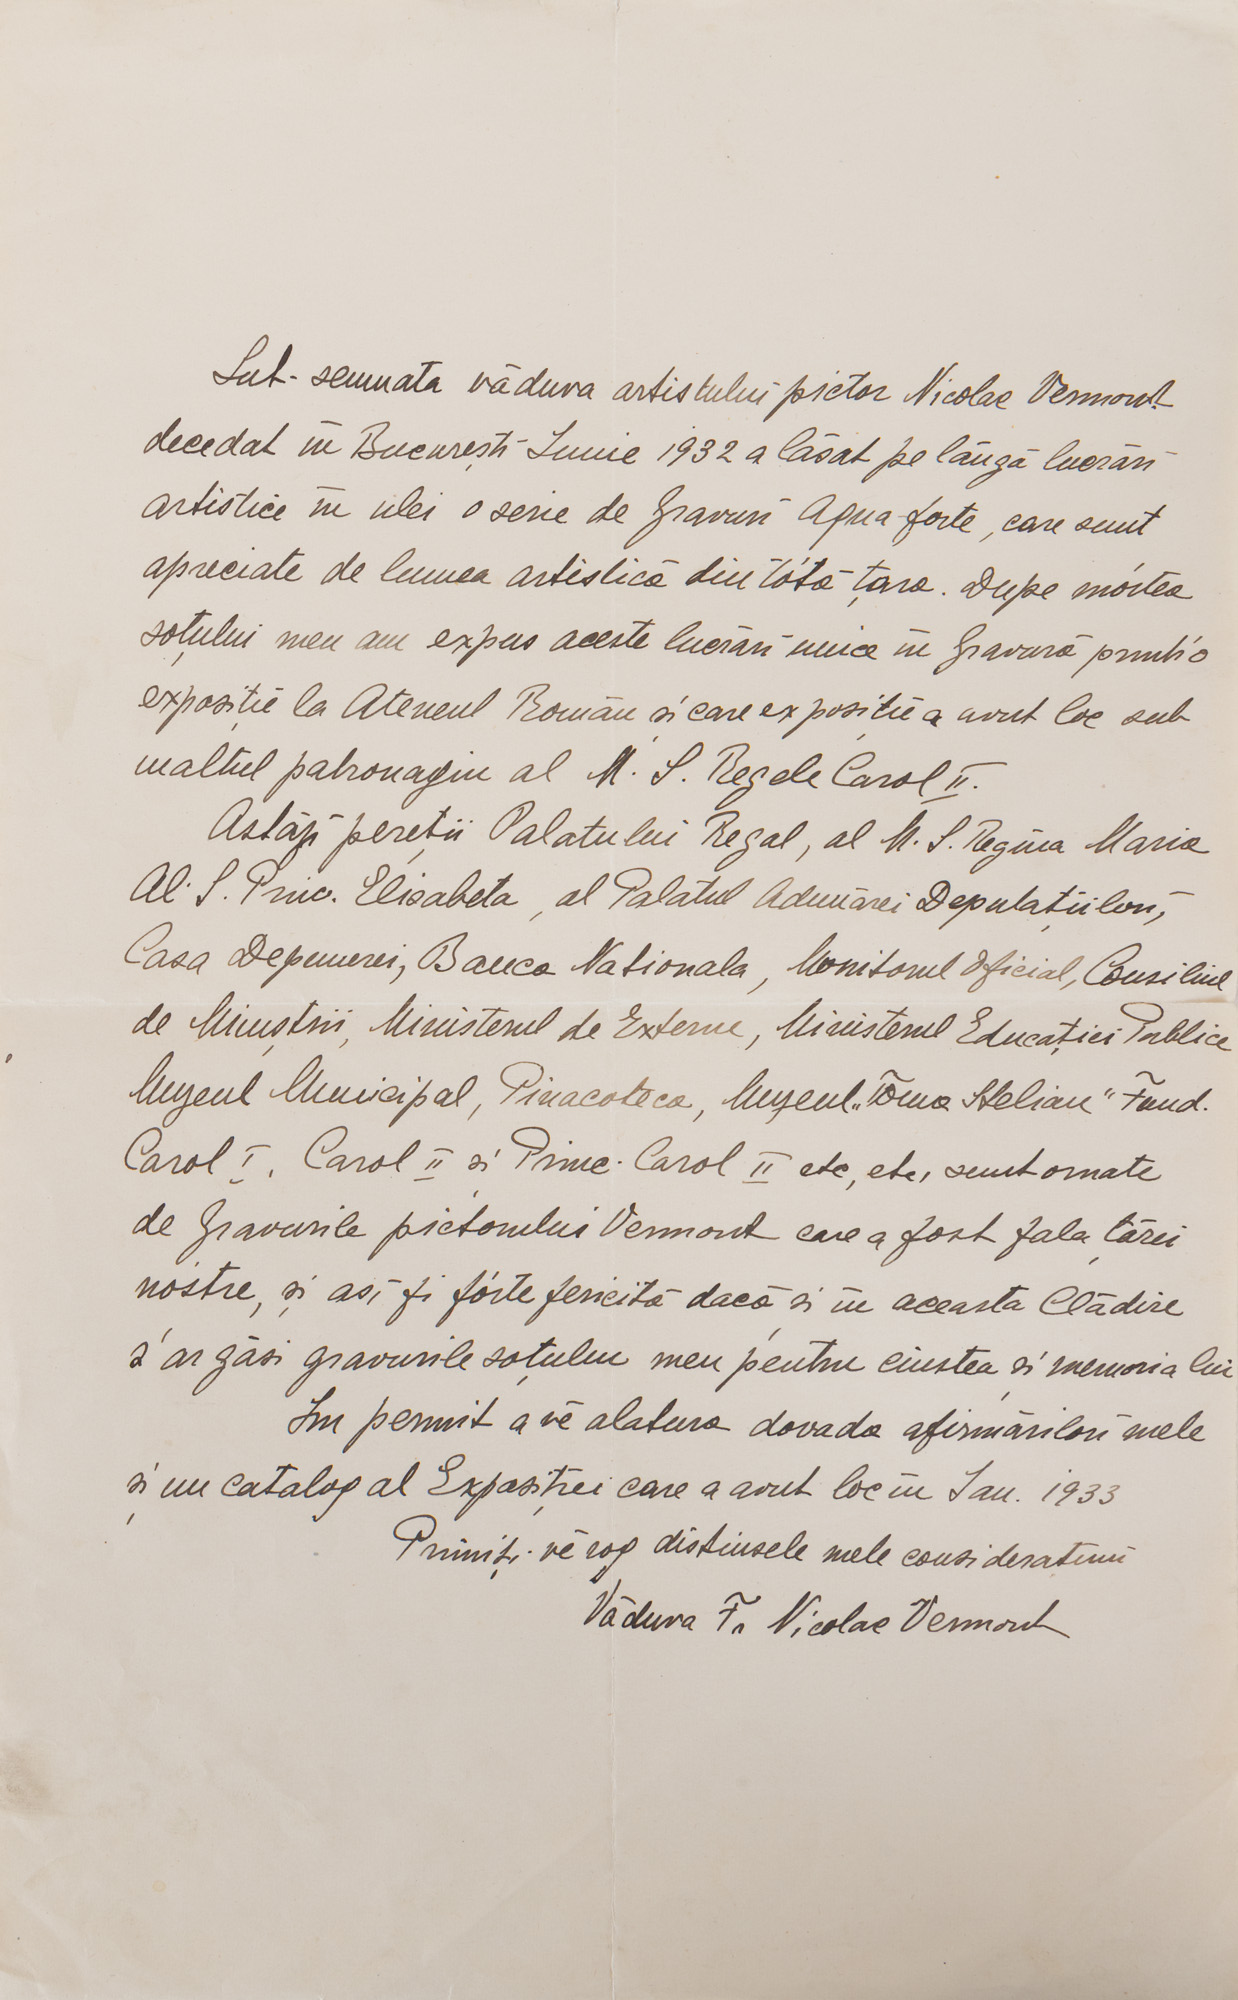 Sub-semnata văduva artistului pictor Nicolae Vermont
decedat în București Iunie 1932 a lăsat pe lângă lucrări
artistice în ulei o serie de gravuri Aqua-forte, care sunt
apreciate de lumea artistică din tótă țara. Dupe mórtea
soțului meu am expus aceste lucrări unice în gravură printr'o
expoziție la Ateneul Român și care expoziție a avut loc sub
înaltul patronagiu al M. S. Regele Carol II.
Astăzi pereții Palatului Regal, al M. S. Regina Maria
Al. S. Princ. Elisabeta, al Palatul Adunărei Deputaților,
Casa Depunerei, Banca Nationala, Monitorul Oficial, Consiliul
de Miniștrii, Ministerul de Externe, Ministerul Educației Publice
Muzeul Municipal, Pinacoteca, Muzeul „Toma Stelian" Fund.
Carol I, Carol II și Princ. Carol II etc, etc, sunt ornate
de gravurile pictorului Vermont care a fost fala țărei
nóstre, și ași fi fórte fericită dacă și în aceasta Clădire
s'ar găsi gravurile soțului meu pentru cinstea și memoria lui
Îm permit a vĕ alatura dovada afirmărilor mele
și un catalog al Expoziției care a avut loc în Ian. 1933
Primiți vĕ rog distinsele mele considerațiuni
Văduva Fr. Nicolae Vermont